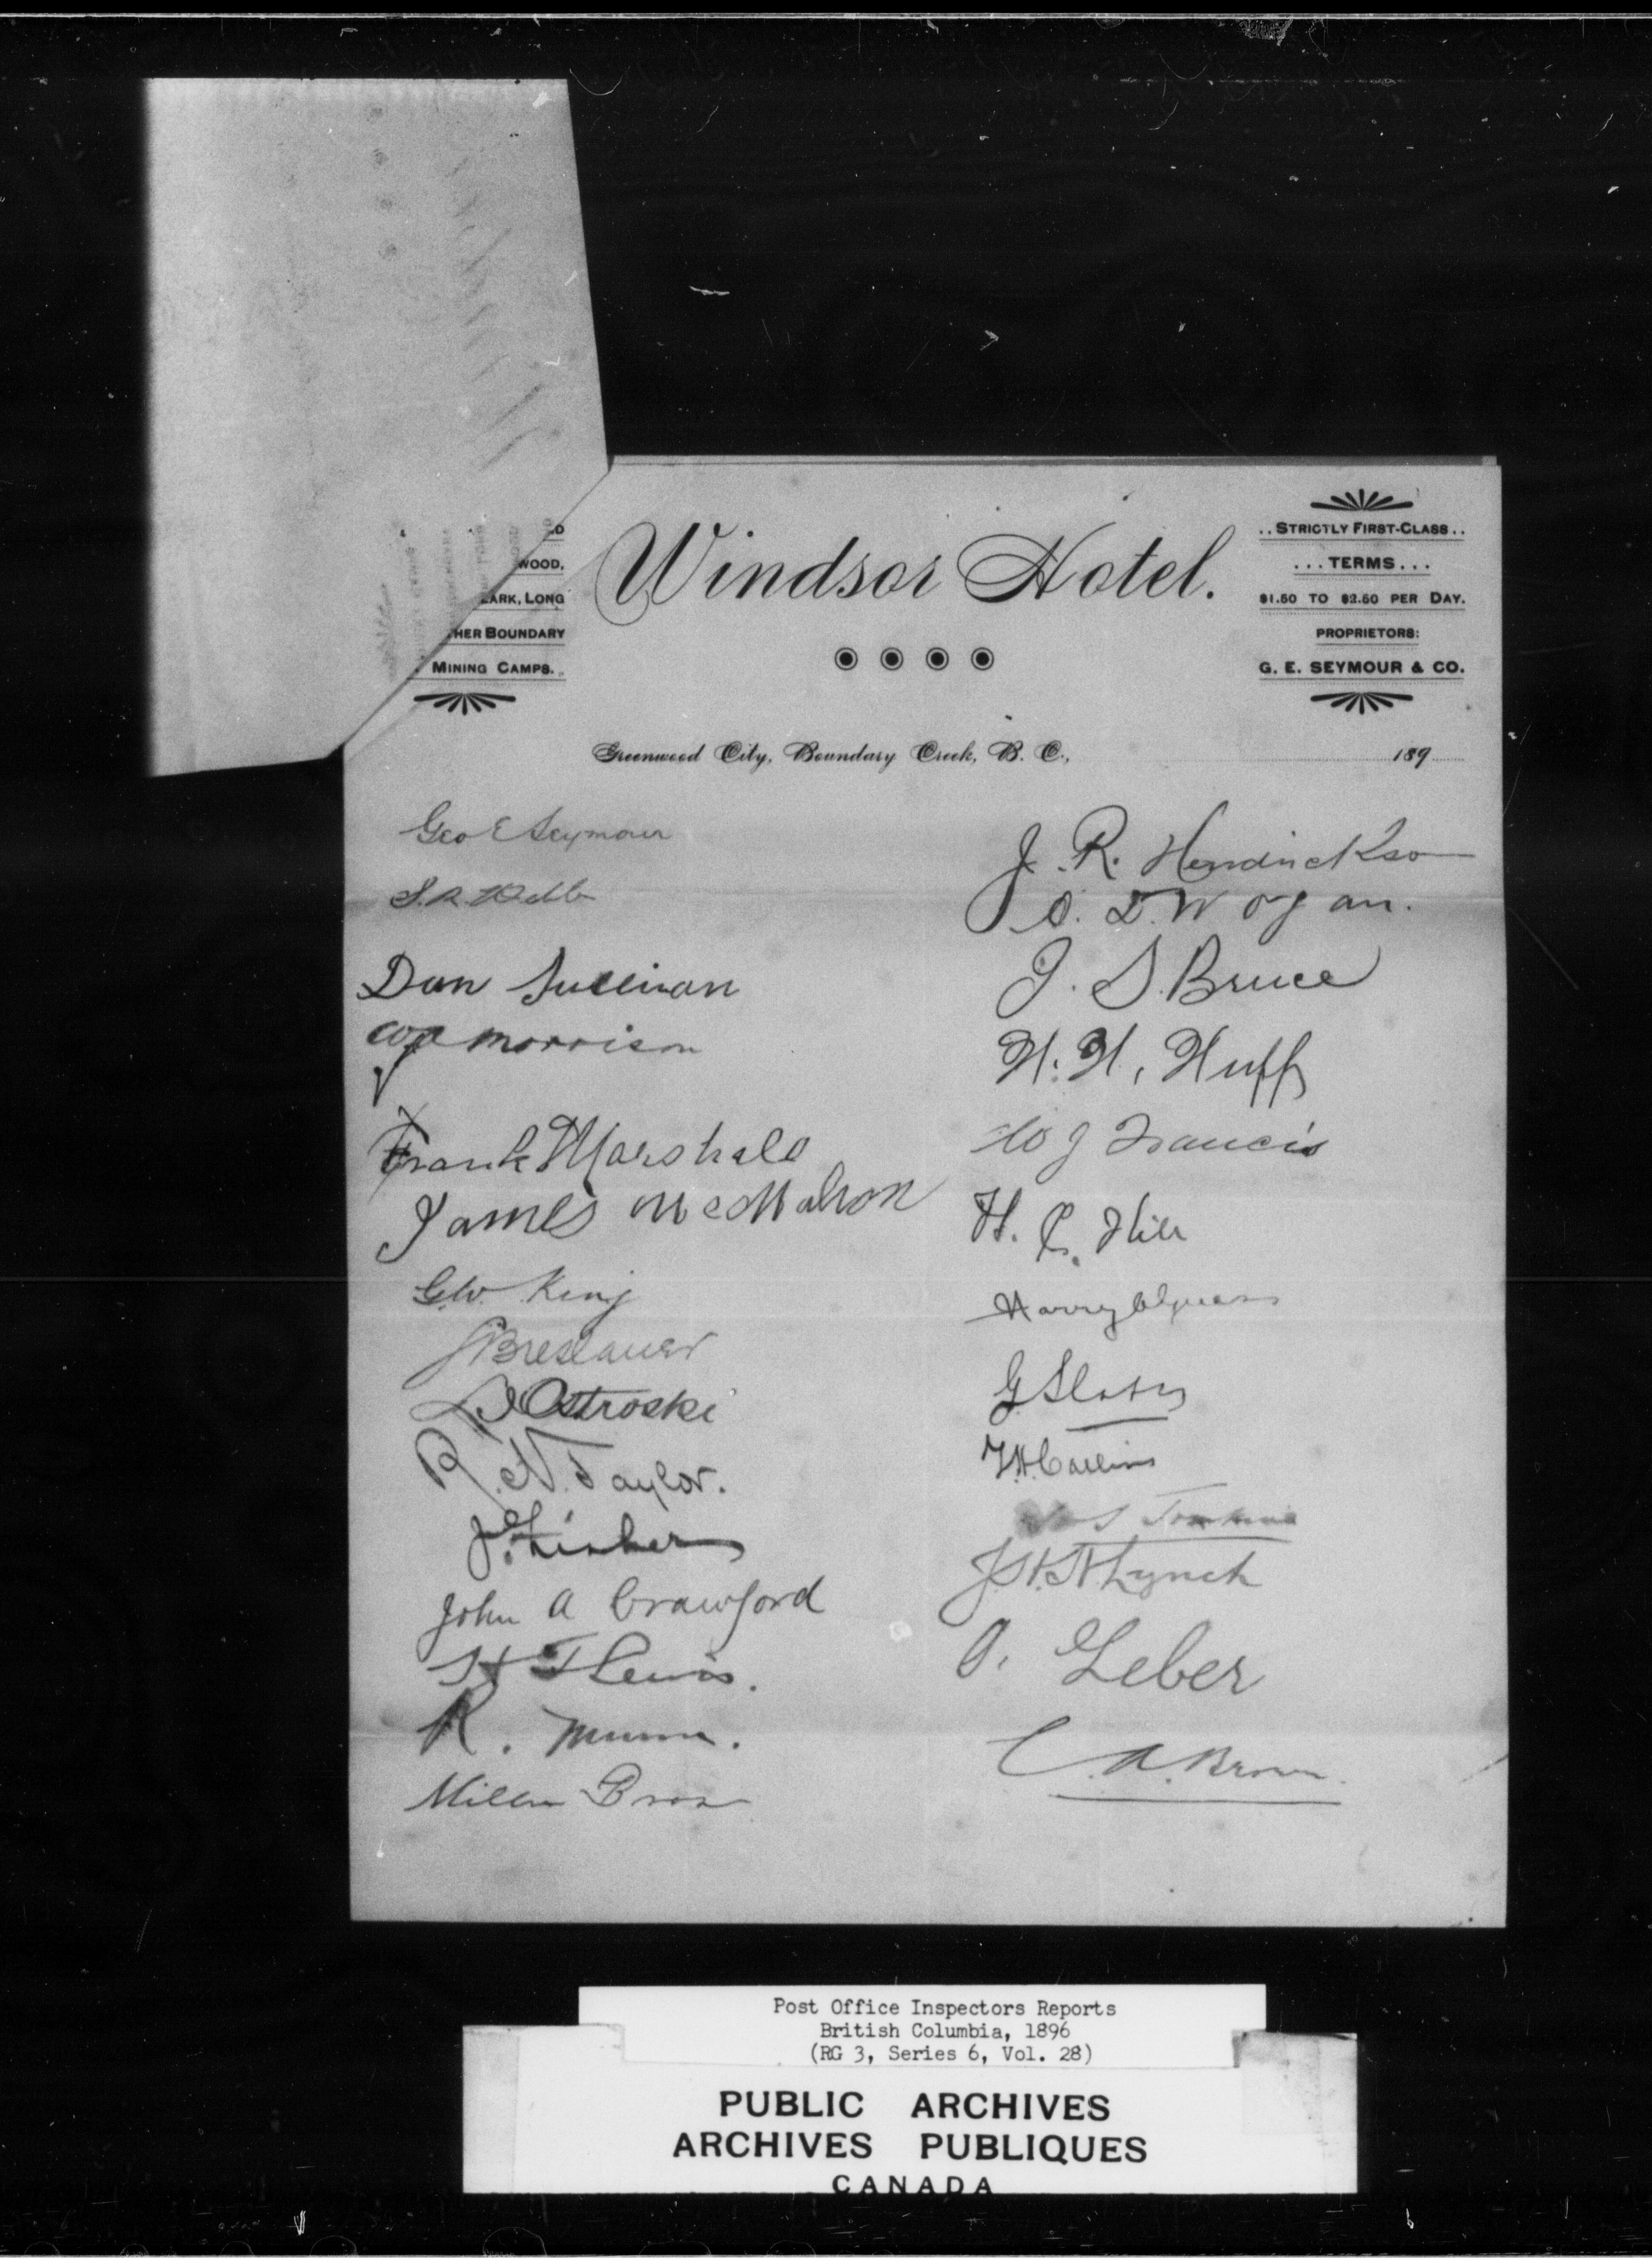 WOOD,
LARK, LONG
HER BOUNDARY
MINING CAMPS.
Windsor Hotel.
.. STRICTLY FIRST-CLASS ..
... TERMS ...
$1.50 TO $2.50 PER DAY.
PROPRIETORS:
G. E. SEYMOUR & CO.
Greenwood City, Boundary Creek, B. C., 189
Geo E Seymour
S. R.
Dan Sullivan
Morrison
Frank Marshall
James McMahon
G.W. King
Breslauer
Ostroski
R. N. Taylor.
J. Fisher
John A Crawford
H T Lewis.
R. Munn.
Miller Bros
J. R. Hendrickson
O. D. Wogan.
J. S. Bruce
H. H. Huff
W J Francis
H. C. Hill
Harry
G Slater
Collins
Lynch
O. Leber
C. A. Brown.
Post Office Inspectors Reports
British Columbia, 1896
(RG 3, Series 6, Vol. 28)
PUBLIC ARCHIVES
ARCHIVES PUBLIQUES
CANADA